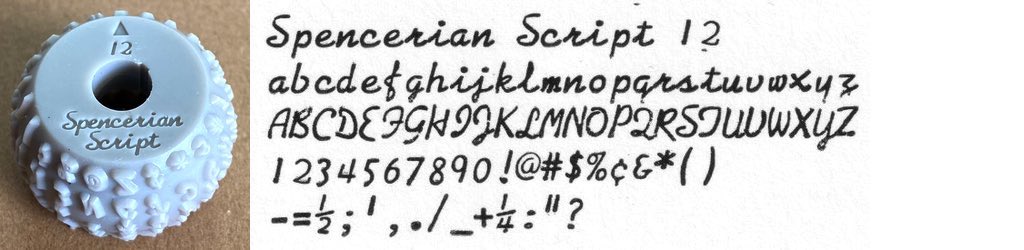 12
Spencerian
Script
Spencerian Script 12
abcdefghijklmnopqrstuvwxyz
ABCDEFGHIJKLMNOPQRSTUVWXYZ
1234567890!@#$%¢&*()
-=½;',./_+¼:"?